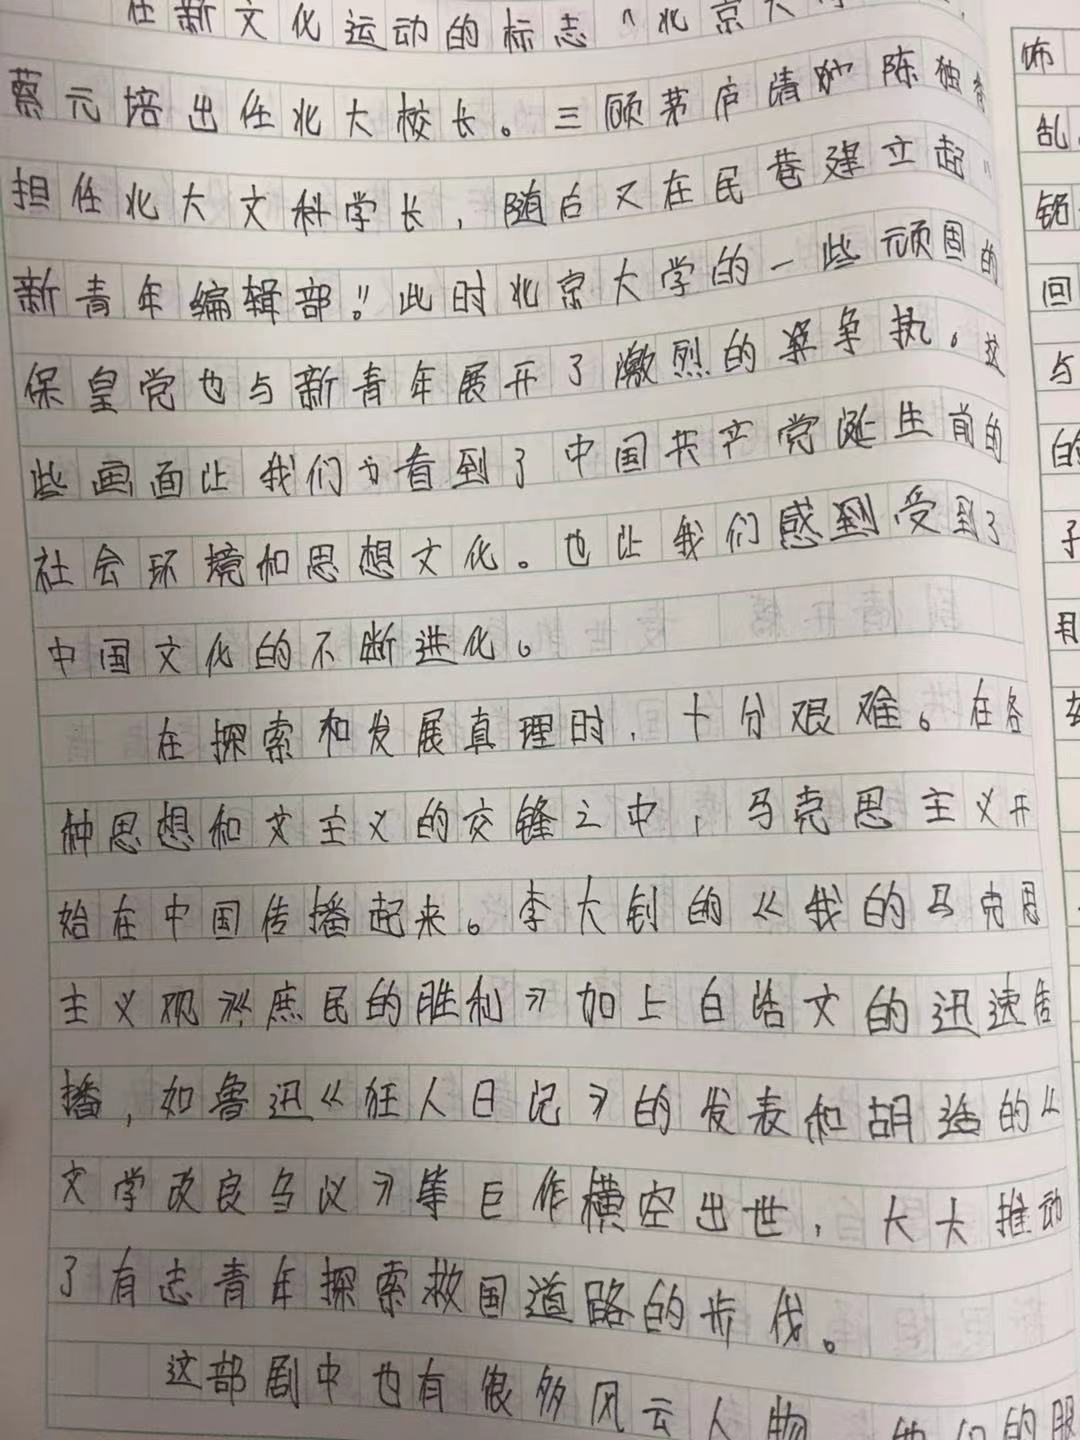 在新文化运动的标志“北京大
蔡元培出任北大校长。三顾茅庐请 陈独秀
担任北大文科学长，随后又在民巷建立起“
新青年编辑部。”此时北京大学的一些顽固的
保皇党也与新青年展开了激烈的 争执。这
些画面让我们 看到了中国共产党诞生前的
社会环境和思想文化。也让我们感到受到了
中国文化的不断进化。
在探索和发展真理时，十分艰难。在各
种思想和文主义的交锋之中，马克思主义开
始在中国传播起来。李大钊的《我的马克思
主义观》《庶民的胜利》加上白话文的迅速传
播，如鲁迅《狂人日记》的发表和胡适的《
文学改良刍议》等巨作横空出世，大大推动
了有志青年探索救国道路的步伐。
这部剧中也有很多风云人物 他们的服
饰
乱
铭
回
与
的
子